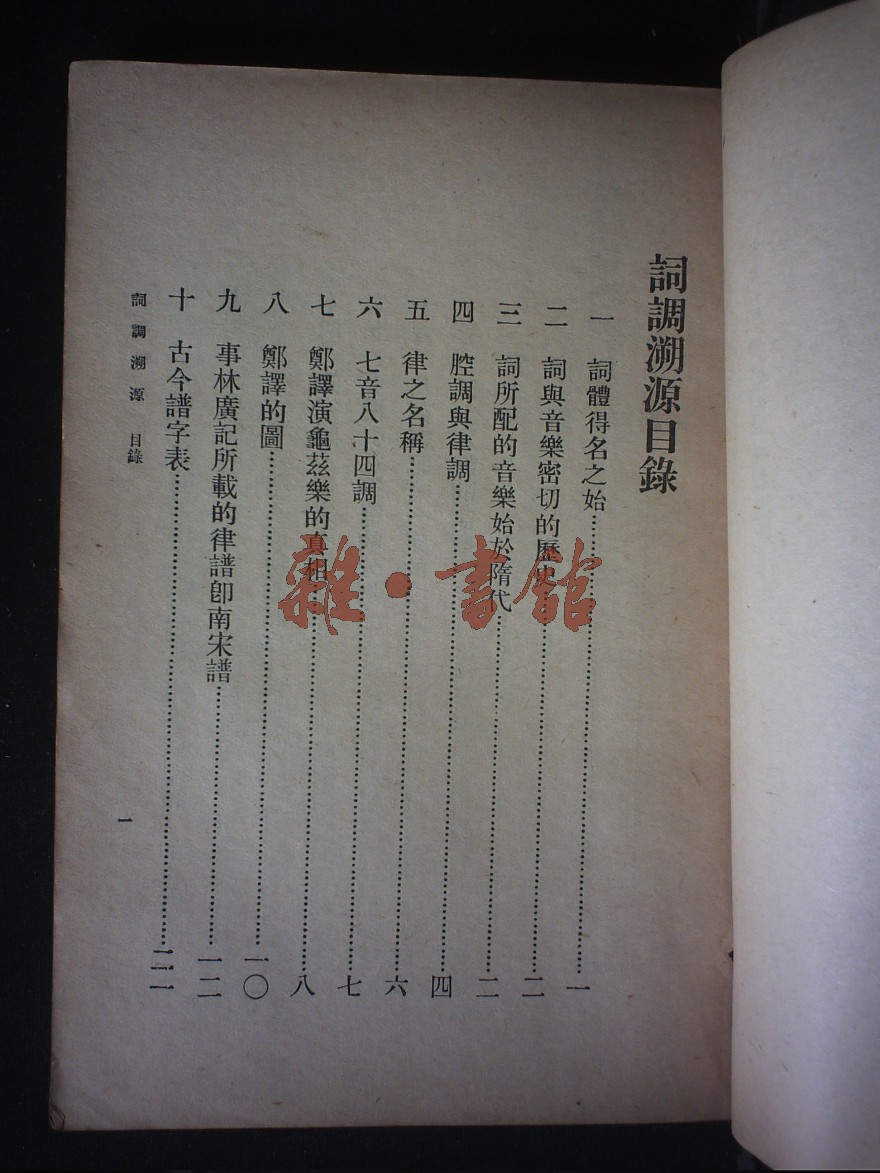 詞調溯源目錄
一 詞體得名之始……一
二 詞與音樂密切的歷史……二
三 詞所配的音樂始於隋代……二
四 腔調與律調……四
五 律之名稱……六
六 七音八十四調……七
七 鄭譯演龜茲樂的真相……八
八 鄭譯的圖……一〇
九 事林廣記所載的律譜卽南宋譜……一二
十 古今譜字表……二一
詞調溯源 目錄
一
雜·書館